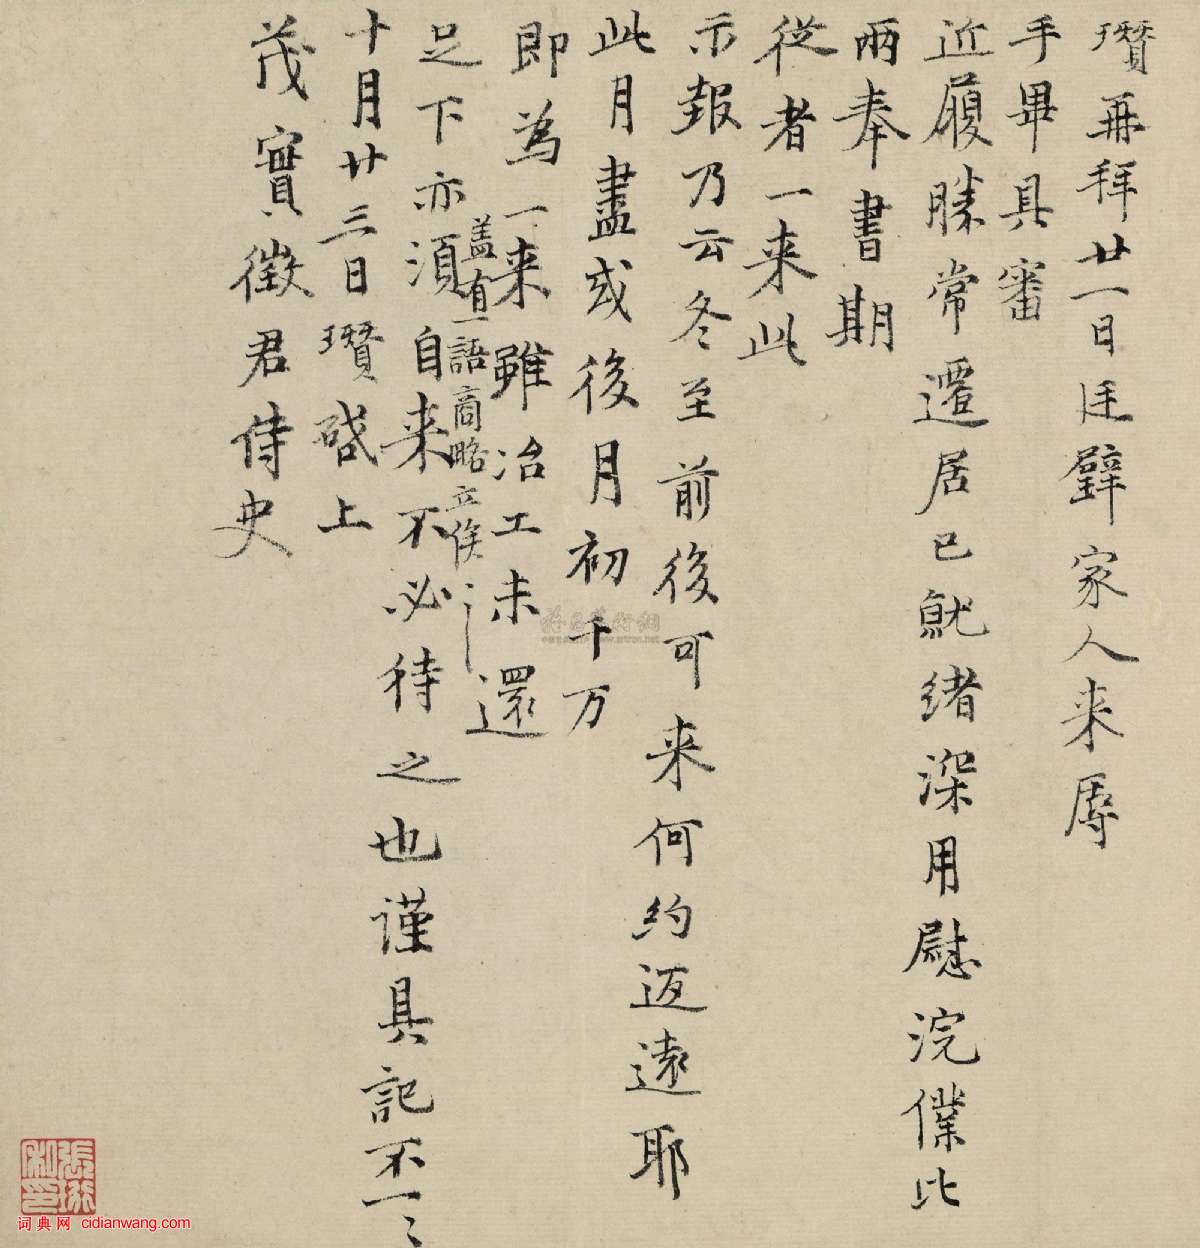 瓚再拜廿一日廷璧家人来辱
手畢具審
近履勝常遷居已就绪深用慰浣僕比
兩奉書期
從者一来此
示報乃云冬至前後可来何約返遠耶
此月盡或後月初千万
即為一来雖冶工未還
盖有一語商略立俟
足下亦須自来不必待之也謹具記不一一
十月廿三日瓚啓上
茂實徵君侍史
張珩私印
词典网 cidianwang.com